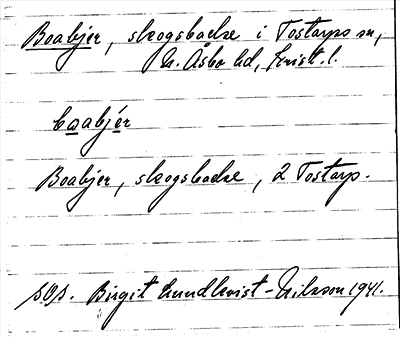 Boabjer, skogsbacke i Tostarps sn,
N. Åsbo hd, Krist. l.
boabjér
Boabjer, skogsbacke, 2 Tostarp.
SOS. Birgit Lundkvist-Nilsson 1941.